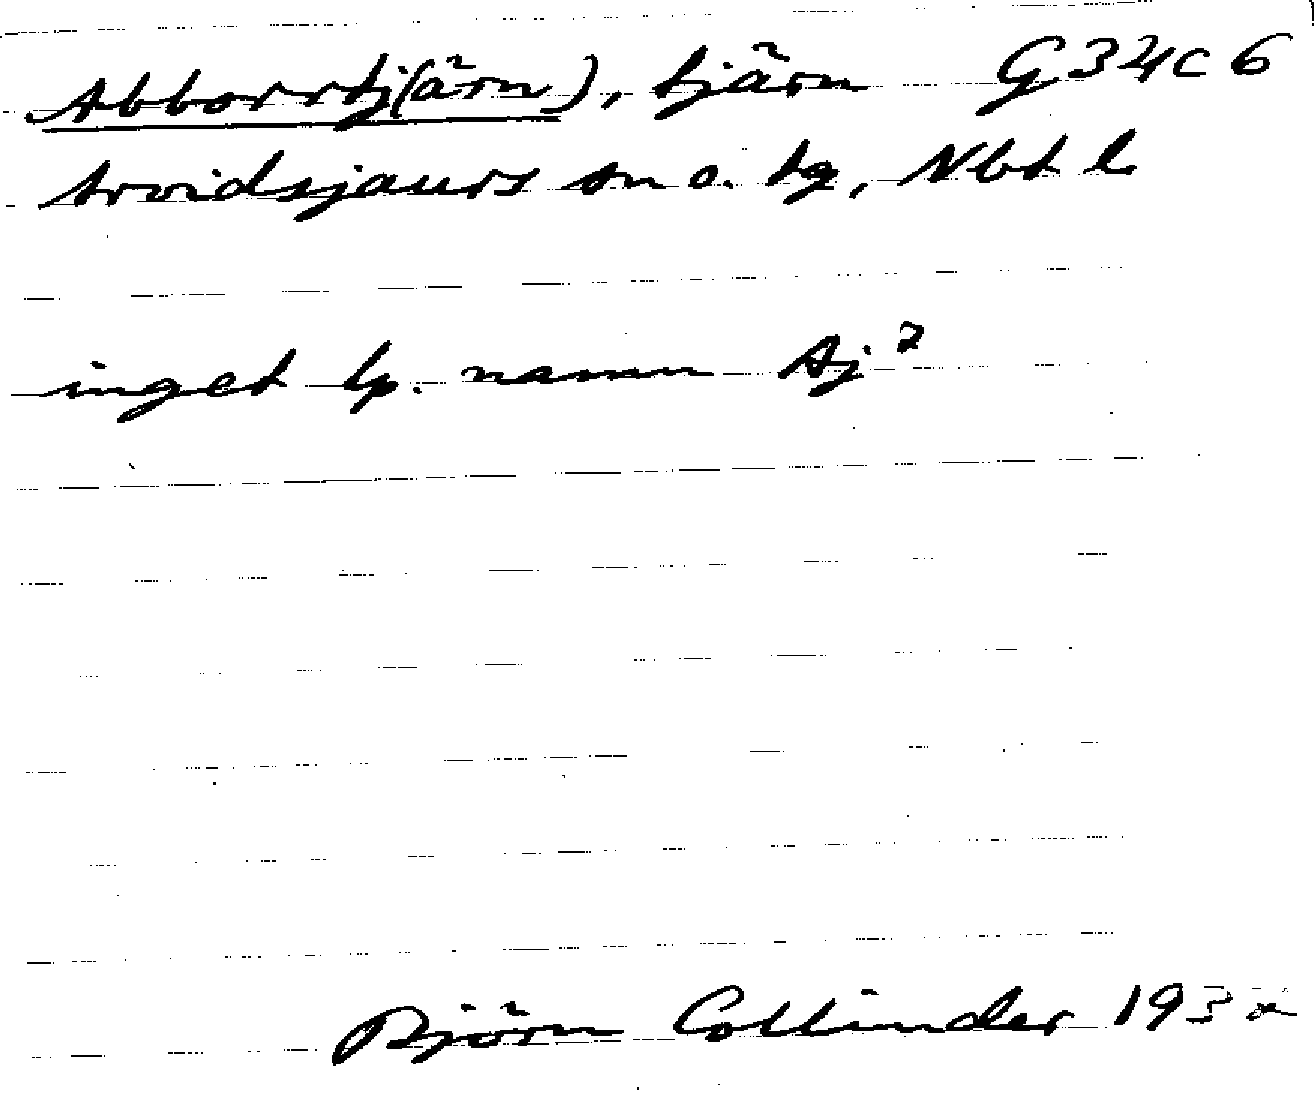 Abborrtj(ärn), tjärn G34c6
Arvidsjaurs sn o. tg, Nbt l
inget lp. namn Aj²
Björn Collinder 193